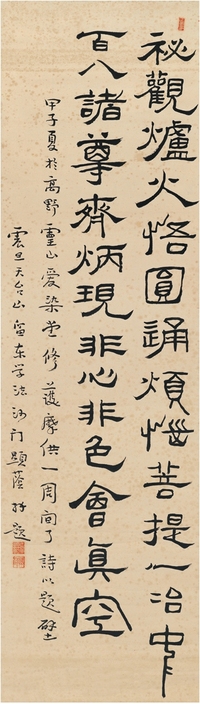 祕觀爐火悟圓通煩惱菩提一冶中
百八諸尊齊炳現非心非色會真空
甲子夏於高野靈山愛染堂修護摩供一周間了詩以題壁
震旦天台山留东学法沙门顯蔭并題